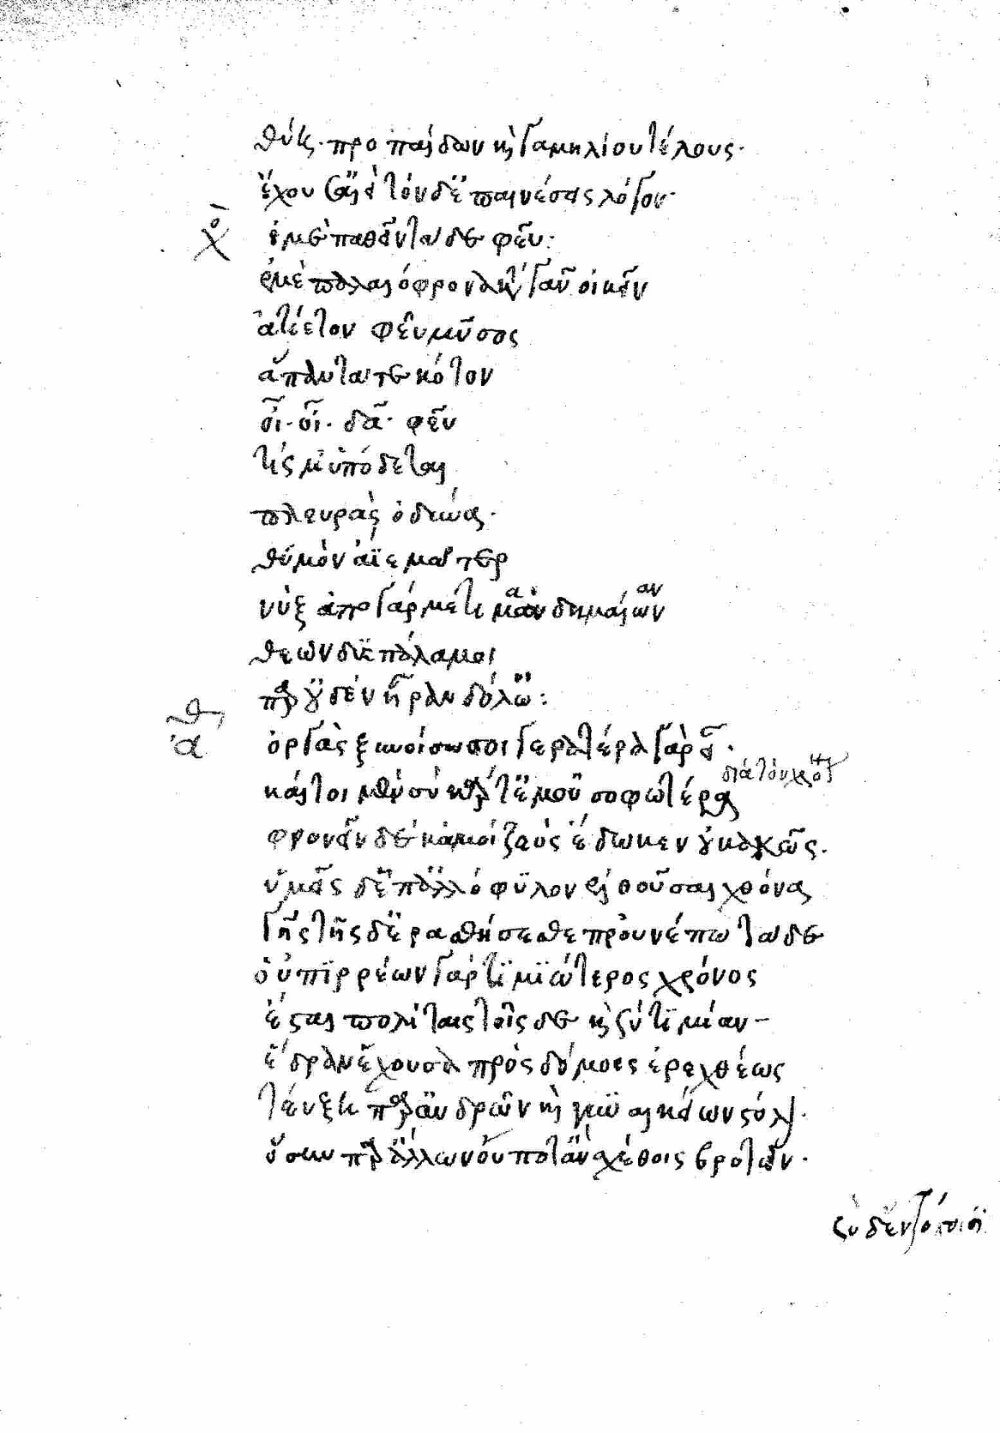 θύη· προ παίδων καὶ γαμηλίου τέλους·
ἔχουσ' αἰεὶ τόνδ' ἐπαινέσεις λόγον·
χο ἐμὲ παθεῖν τάδε φεῦ:
ἐμὲ παλαιόφρονα κατὰ γᾶν οἰκεῖν
ἀτίετον φεῦ μῦσος
ἅπαντά τε κότον
οἶ· οἶ· δᾶ· φεῦ
τίς μ' ὑπόδεται
πλευρὰς ὀδύνα·
θυμὸν ἄϊε μᾶτερ
νὺξ ἀπὸ γάρ με τιμᾶν δημαίων
θεῶν δυσπάλαμοι
παρ' οὐδὲν ἦραν δόλοι:
αθ ὀργὰς ξυνοίσω σοι γεραιτέρα γὰρ εἶ·
διὰ τὸν χρόνον
καίτοι μὲν σὺ κάρτ' ἐμοῦ σοφωτέρα
φρονεῖν δὲ κἀμοὶ ζεὺς ἔδωκεν οὐ κακῶς·
ὑμεῖς δ' ἐς ἀλλόφυλον ἐλθοῦσαι χθόνα
γῆς τῆσδ' ἐρασθήσεσθε προὐννέπω τάδε
οὑπιρρέων γὰρ τιμιώτερος χρόνος
ἔσται πολίταις τοῖσδε καὶ σὺ τιμίαν
ἕδραν ἔχουσα πρὸς δόμοις ἐρεχθέως
τεύξῃ παρ' ἀνδρῶν καὶ γυναικείων στόλων·
ὅσην παρ' ἄλλων οὔποτ' ἂν σχέθοις βροτῶν·
σὺ δ' ἐν τόποισι